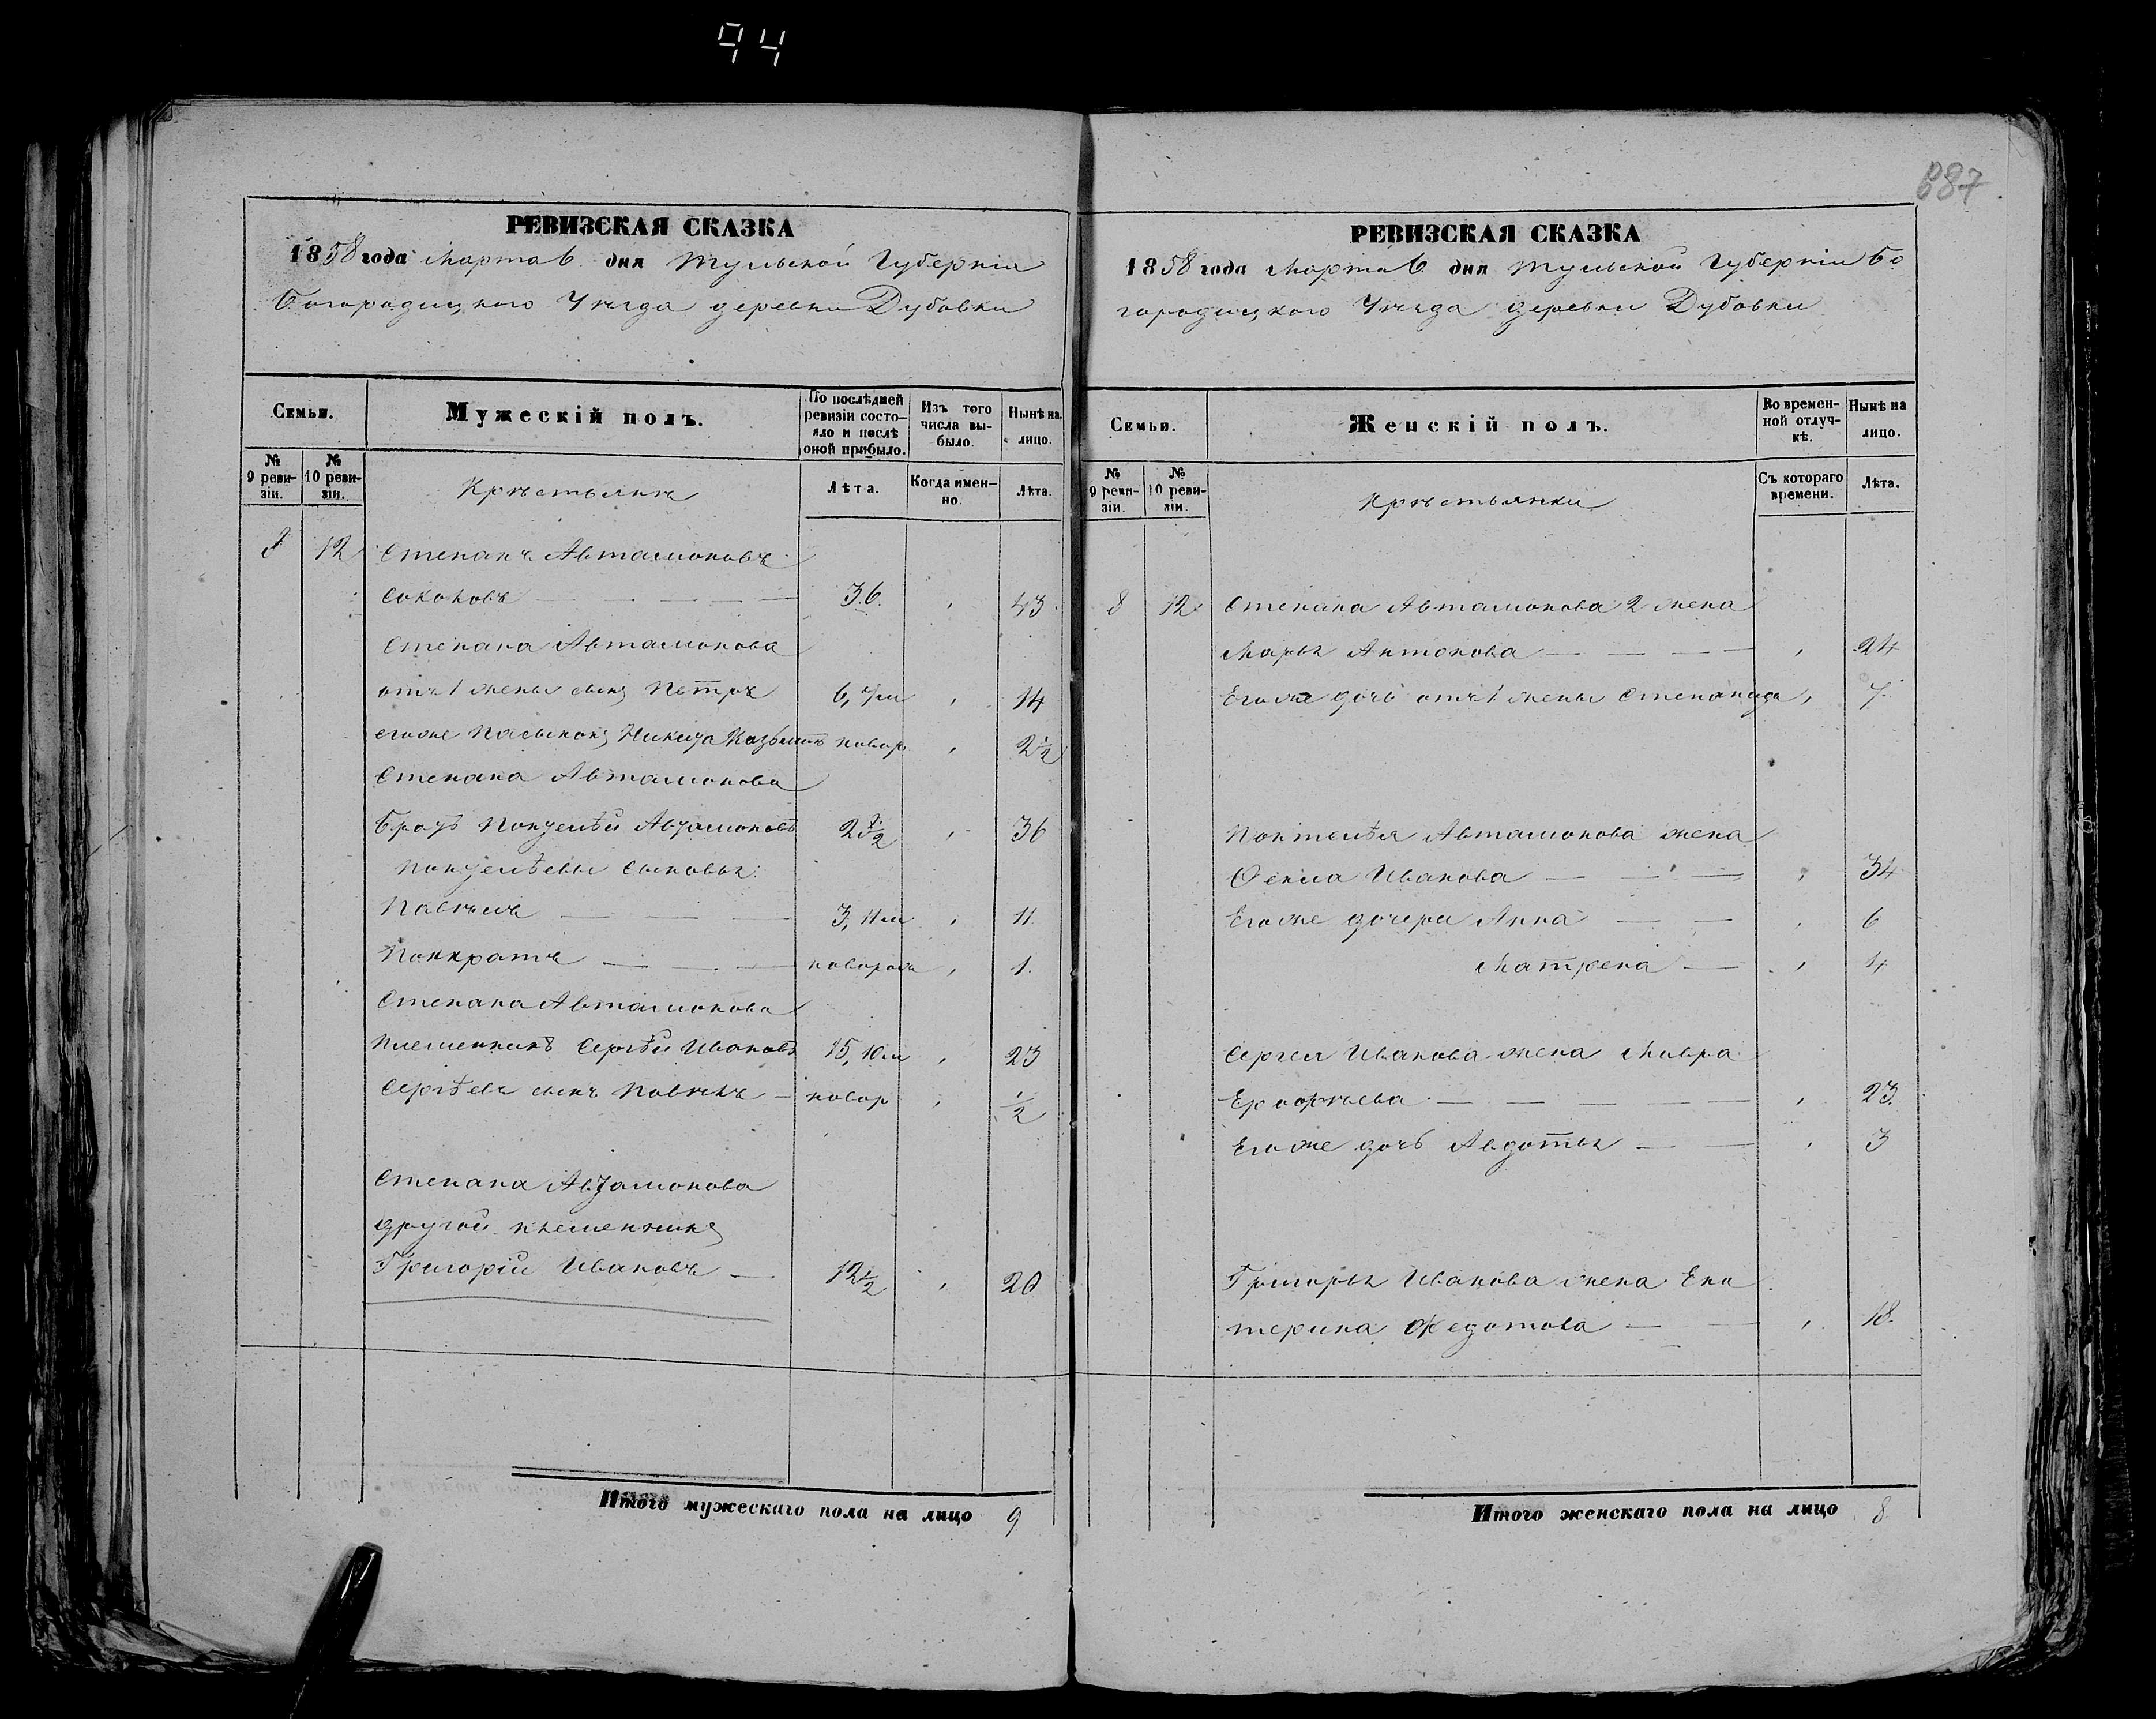 94
887
РЕВИЗСКАЯ СКАЗКА
1858 года Марта 6 дня Тульской Губерніи
Богородицкаго Уѣзда деревни Дубовки
Семьи.
Мужескій полъ.
По послѣдней ревизіи состояло и послѣ оной прибыло.
Изъ того числа выбыло.
Нынѣ на лицо.
№ 9 ревизіи.
№ 10 ревизіи.
Крѣстьянѣ
Лѣта.
Когда именно.
Лѣта.
8 12 Степанъ Автамоновъ
Соколовъ — — — — 36. , 43
Степана Автамонова
отъ 1 жены сынъ Пѣтръ 6, 7м , 14
егоже Пасынокъ Никита новор , 2 1/2
Степана Автамонова
братъ Понтелѣй Автамоновъ 28 1/2 , 36
Понтелѣевы сыновья
Павѣлъ — — — 3, 11м , 11.
Понкратъ — — — новорож , 1.
Степана Автамонова
племенникъ Сергѣй Ивановъ 15, 10м , 23
Сергѣевъ сынъ Павѣлъ — новор , 1/2
Степана Автамонова
другой племенникъ
Григорій Ивановъ — 12 1/2 , 20
Итого мужескаго пола на лицо 9
РЕВИЗСКАЯ СКАЗКА
1858 года Марта 6 дня Тульской Губерніи Бо
городицкаго Уѣзда деревни Дубовки
Семьи.
Женскій полъ.
Во временной отлучкѣ.
Нынѣ на лицо.
№ 9 ревизіи.
№ 10 ревизіи.
Крѣстьянки
Съ котораго времени.
Лѣта.
8 12 Степана Автамонова 2 жена
Марья Антонова — — — — , 24
Егоже дочь отъ 1 жены Степанида , 7
Понтелѣя Автамонова жена
Фекла Иванова — — — , 34
Егоже дочери Анна — — , 6
Матрена — , 4
Сергея Иванова жена Мавра
— — — — , 23.
Егоже дочь Авдотья — — , 3
Григорья Иванова жена Ека
терина Федотова — — , 18.
Итого женскаго пола на лицо 8